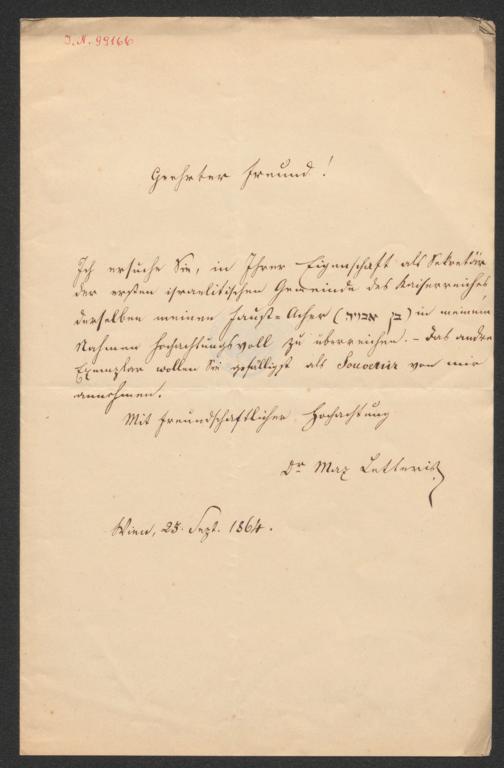 I. N. 99166
Geehrter Freund!
Ich ersuche Sie, in Ihrer Eigenschaft als Sekretär
der ersten israelitischen Gemeinde des Kaiserreiches
derselben meinen Faust-Acher (בן אבויה) in meinem
Nahmen hochachtungsvoll zu überreichen. – Das andre
Exemplar wollen Sie gefälligst als Souvenir von mir
annehmen.
Mit freundschaftlicher Hochachtung
Dr Max Letteris
Wien, 25. Sept. 1864.